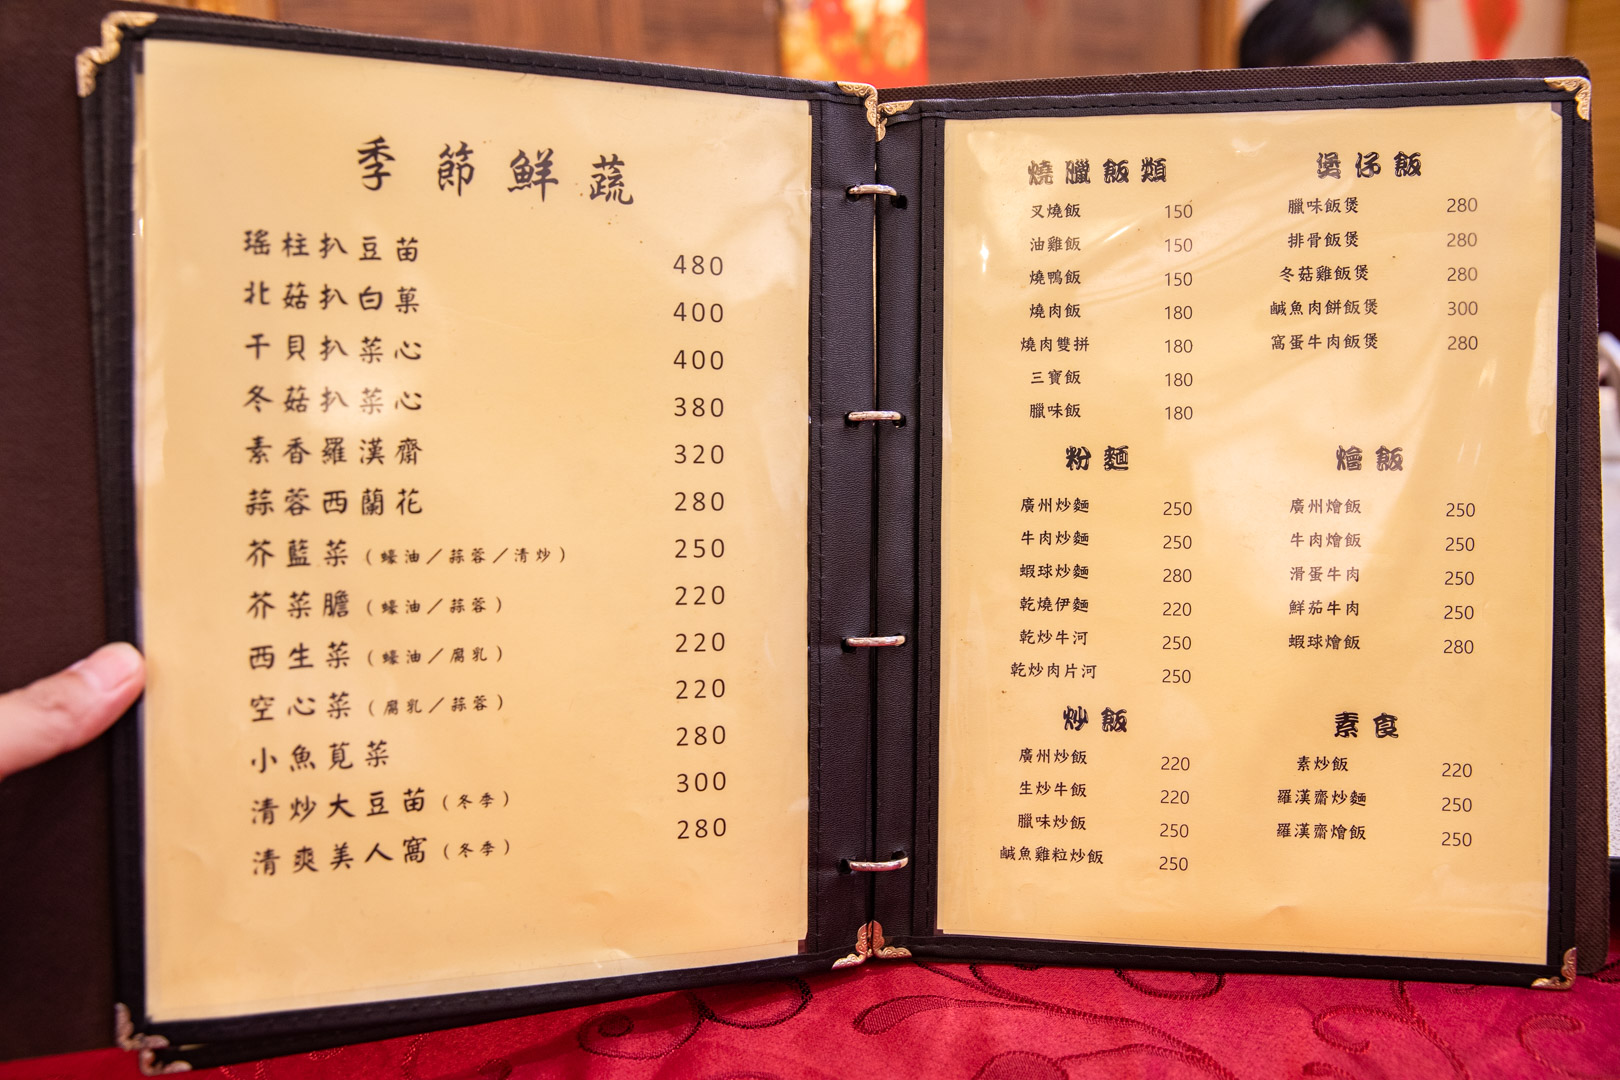 季節鮮蔬
瑤柱扒豆苗 480
北菇扒白菓 400
干貝扒菜心 400
冬菇扒菜心 380
素香羅漢齋 320
蒜蓉西蘭花 280
芥藍菜（蠔油／蒜蓉／清炒） 250
芥菜膽（蠔油／蒜蓉） 220
西生菜（蠔油／腐乳） 220
空心菜（腐乳／蒜蓉） 220
小魚莧菜 280
清炒大豆苗（冬季） 300
清爽美人窩（冬季） 280
燒臘飯類
叉燒飯 150
油雞飯 150
燒鴨飯 150
燒肉飯 180
燒肉雙拼 180
三寶飯 180
臘味飯 180
煲仔飯
臘味飯煲 280
排骨飯煲 280
冬菇雞飯煲 280
鹹魚肉餅飯煲 300
窩蛋牛肉飯煲 280
粉麵
廣州炒麵 250
牛肉炒麵 250
蝦球炒麵 280
乾燒伊麵 220
乾炒牛河 250
乾炒肉片河 250
燴飯
廣州燴飯 250
牛肉燴飯 250
滑蛋牛肉 250
鮮茄牛肉 250
蝦球燴飯 280
炒飯
廣州炒飯 220
生炒牛飯 220
臘味炒飯 250
鹹魚雞粒炒飯 250
素食
素炒飯 220
羅漢齋炒麵 250
羅漢齋燴飯 250